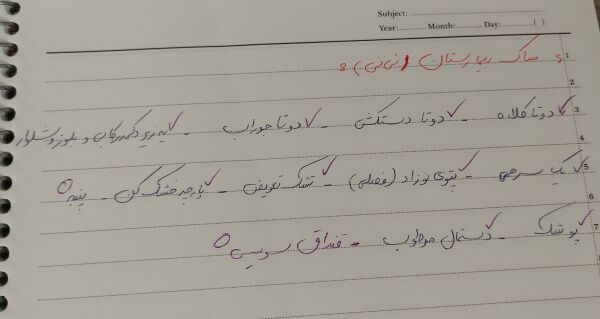 Subject:
Year: Month: Day: ( )
ساک بیمارستان (نی نی) :
1
2
3 دوتا کلاه ✓ - دوتا دستکش ✓ - دوتا جوراب ✓ - زیر دکمه رکابی و بلوز و شلوار ✓
4
5 یک سرهمی ✓ - پتوی نوزاد (فصلی) ✓ - تشک تعویض ✓ - پارچه خشک کن ✓ - پنبه
6
7 پوشک ✓ - دستمال مرطوب ✓ - قنداق سوییسی